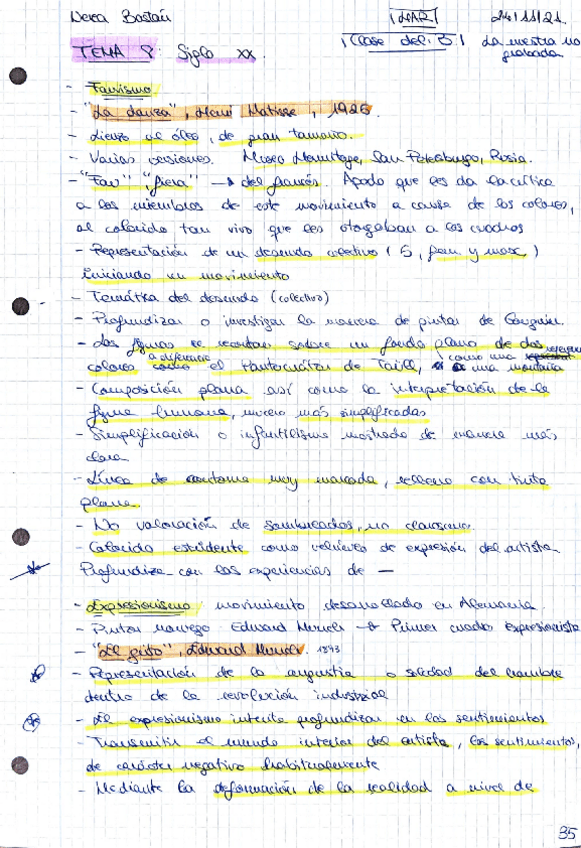 Nerea Bastán
HAR
24/11/21
TEMA 8: Siglo XX
(Clase del: B)
La nuestra no grabada
- Fauvismo
- "La danza", Henri Matisse, 1926.
- Lienzo al óleo, de gran tamaño.
- Varias versiones. Museo Hermitage, San Petesburgo, Rusia.
- "Fauv" "fiera" → del francés. Apodo que les da la crítica
a los miembros de este movimiento a causa de los colores,
al colorido tan vivo que les otorgaban a los cuadros
- Representación de un desnudo colectivo (5, fem y masc)
iniciando un movimiento
- Temática del desnudo (colectivo)
- Profundizar o investigar la manera de pintar de Gauguin.
- Las figuras se recortan sobre un fondo plano de dos
colores a diferencia el Pantocrátor de Taüll, como una una montaña
- Composición plana así como la interpretación de la
figura humana, mucho más simplificadas
- Simplificación o infantilismo mostrado de manera más
clara
- Línea de contorno muy marcada, relleno con tinta
plana.
- No valoración de sombreados, no claroscuro.
- Colorido estridente como vehículo de expresión del artista
Profundiza con las experiencias de —
- Expresionismo movimiento desarrollado en Alemania.
- Pintor noruego Edward Munch → Primer cuadro expresionista
- "El grito", Edward Munch. 1893
- Representación de la angustia o soledad del hombre
dentro de la revolución industrial
- El expresionismo intenta profundizar en los sentimientos
- Transmitir el mundo interior del artista, los sentimientos,
de carácter negativo habitualmente
- Mediante la deformación de la realidad a nivel de
35